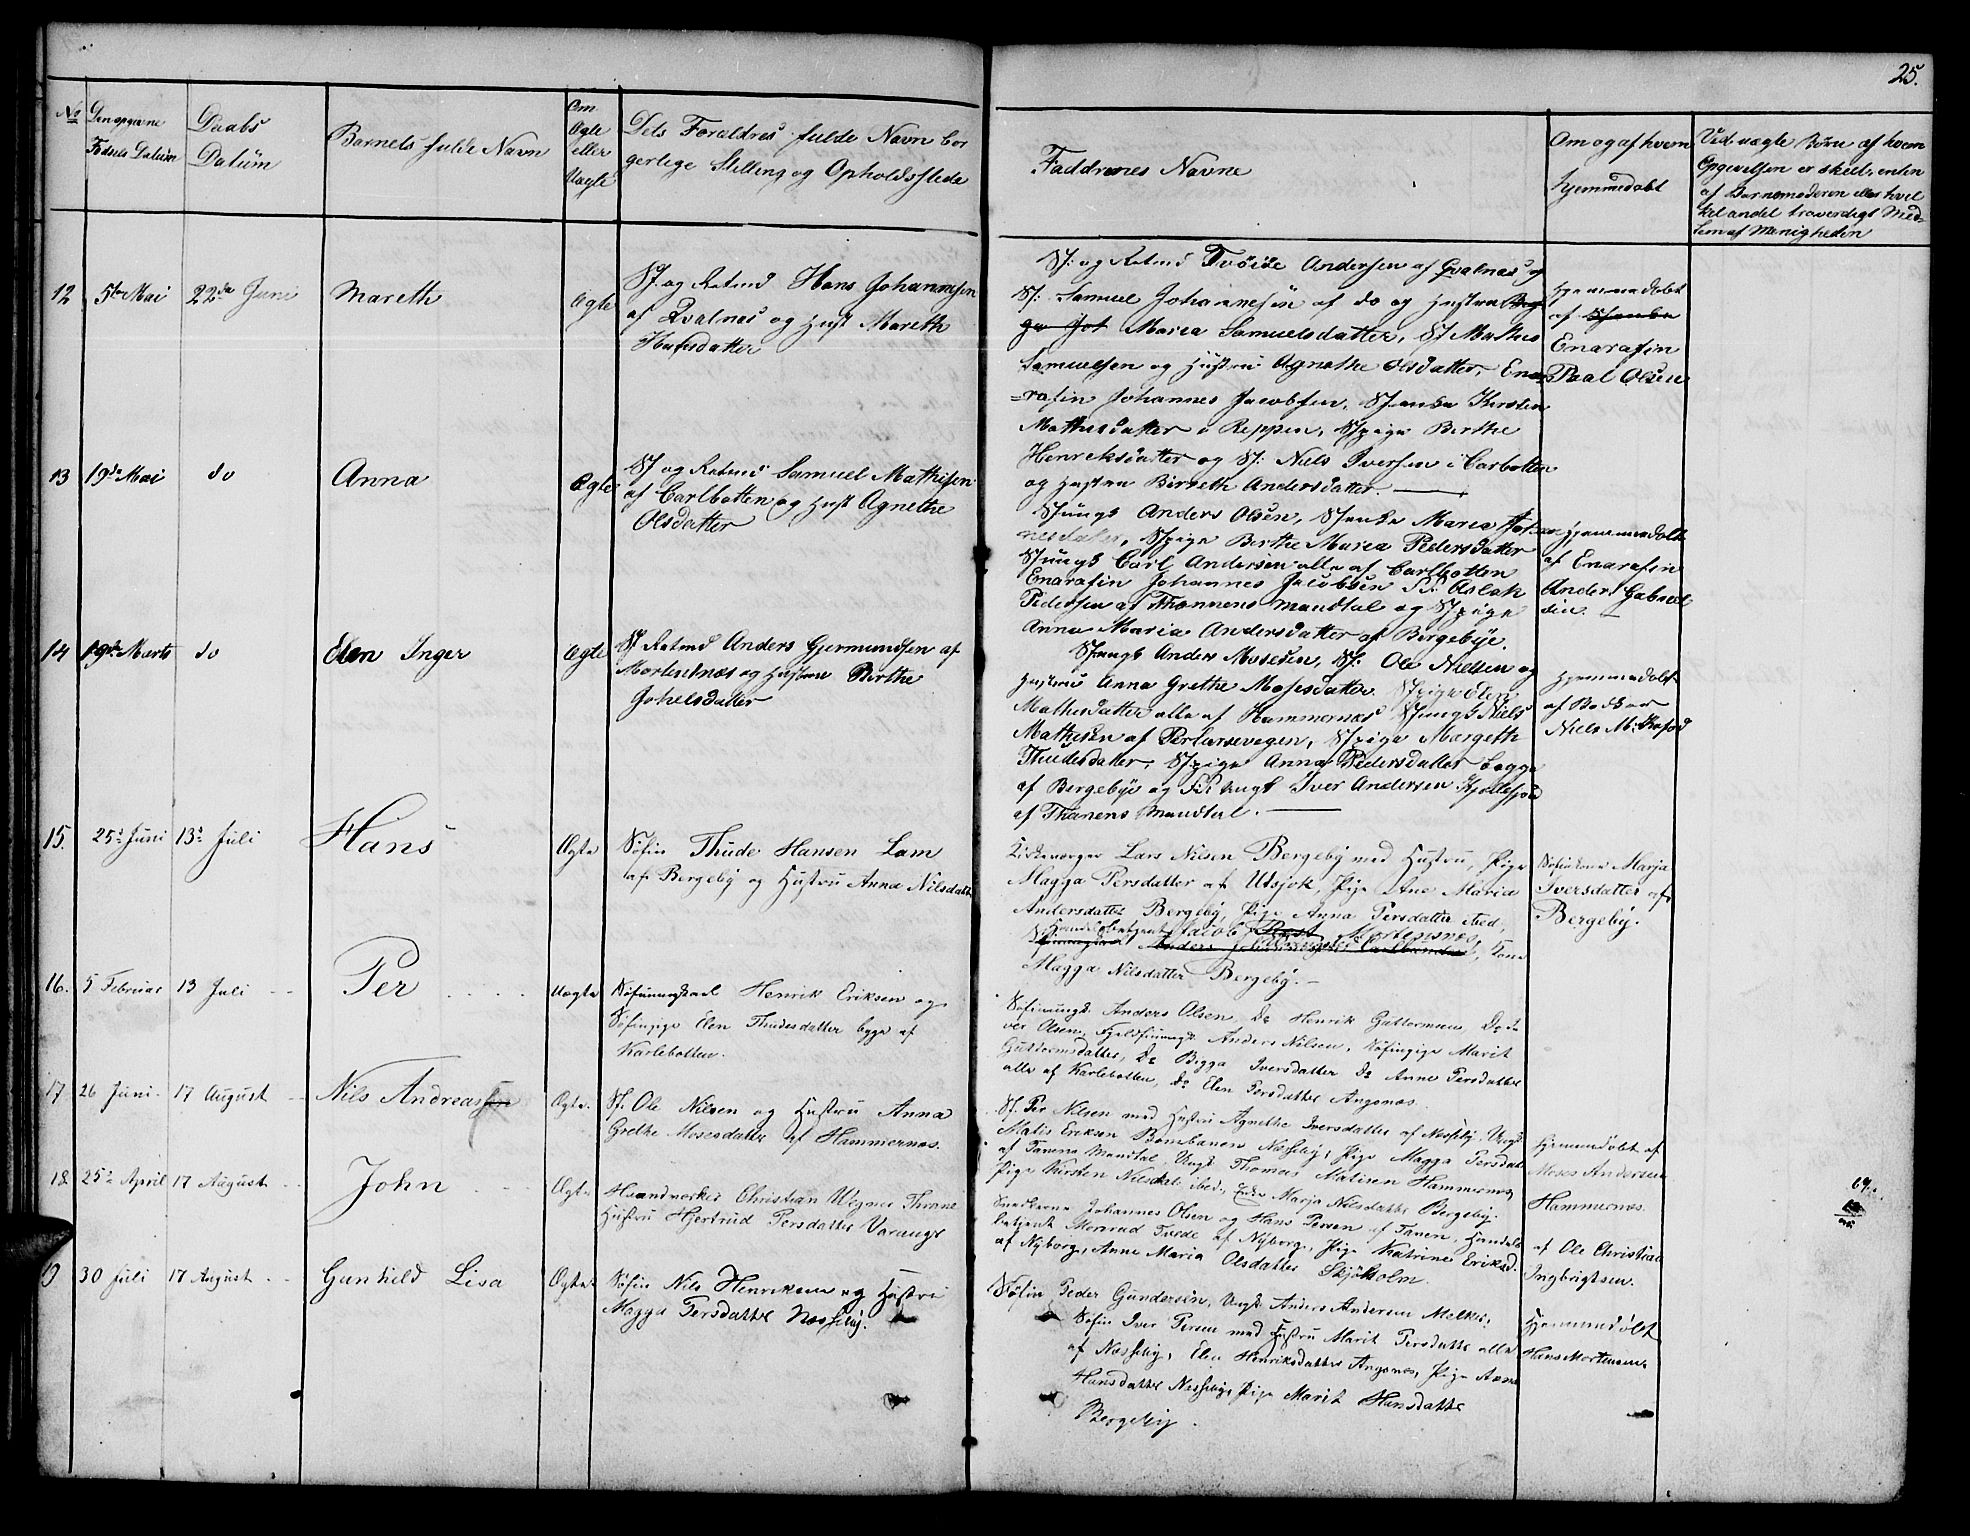 25.
No
Den opgivne
Fødsels Datum
Daabs
Datum
Barnets fulde Navn
Om
Ægte
eller
Uægte
Dets Forældres fulde Navn bor
gerlege Stilling og Opholdsstede
Faddrenes Navne
Om og af hvem
hjemmedøbt
Ved uægte Børn af hvem
Opgivelsen er skeet, enten
af Barnemoderen eller hvil
ket andet troværdigt Med-
lem af Menigheden
12 5te Mai 22de Juni Mareth Ægte
Sf. og Retmd Hans Johannesen
af Qvalnæs og Hust Mareth
Hansdatter
Sf: og Retmd Andersen af Qvalnæs og
Sf: Samuel Johannesen af do og Hustru
Maria Samuelsdatter, Sf Mathis
Samuelsen og Hustru Agnethe Olsdatter, Ena
=rafin Johannes Jacobsen, Sfenke Kirsten
Mathisdatter i Reppen, Sfpige Berthe
Henriksdatter og Sf: Niels Iversen i Carlbotten
og Hustru Birreth Andersdatter.
Hjemmedøbt
af
Enarafin
Paal Olsen
13 19de Mai do Anna Ægte
Sf og Retmd Samuel Mathisen
af Carlbotten og Hust Agnethe
Olsdatter
Sfungk Anders Olsen, Sfenke Maria
Sfpige Berthe Maria Pedersdatter
Sfungk Carl Andersen alle af Carlbotten
Enarafin Johannes Jacobsen Aslak
Pedersen af Thannens mandtal og Sfpige
Anna Maria Andersdatter af Bergebye.
Hjemmedøbt
af Enarafin
Anders Gabriel
sen.
14 19de Marts do Elen Inger Ægte
Sf Retmd Anders Gjermundsen af
Mortensnæs og Hustru Berthe
Johelsdatter
Sfungk Anders Mosesen, Sf: Ole Nielsen og
Hustru Anna Grethe Mosesdatter Sfpige Elen
Mathisdatter alle af Hammernæs Sfungk Niels
Mathisen af Perlarsevegen, Sfpige Margeth
Thudesdatter, Sfpige Anna Pedersdatter begge
af Bergebye og Iver Andersen
af Thanens Mandtal.
Hjemmedøbt
af Bødker
Niels M:
15. 25d Juni 13d Juli Hans Ægte
Søfin Thude Hansen Lam
af Bergeby og Hustru Anna Nilsdatter
Kirkeværger Lars Nilsen Bergeby med Hustru, Pige
Magga Persdatter af Utsjok, Pige Ane Maria
Andersdatter Bergeby, Pige Anna Persdatter ibed,
Jacob Mortensnæs, Kone
Magga Nilsdatter Bergeby.
Søfinkone Marja
Iversdatter af
Bergeby.
16. 5 Februar 13 Juli Per Uægte
Søfinungkarl Henrik Eriksen og
Søfinpige Elen Thudesdatter begge af
Karlebotten.
Søfinungk Anders Olsen, Do Henrik Guttormsen Do I-
ver Olsen, Fjeldfinungk Anders Nilsen, Søfinpige Marit
Guttormsdatter, Do Bigga Iversdatter Do Anne Persdatter
alle af Karlebotten, Do Elen Persdatter Angsnæs.
17 26 Juni 17 August Nils Andreassen Ægte.
Sf. Ole Nilsen og Hustru Anna
Grethe Mosesdatter af Hammernæs.
Sf. Per Nilsen med Hustru Agnethe Iversdatter af Nesseby, Ungk
Matis Eriksen Bombanens Nesseby, Pige Magga Persdat
af Tanens Mandtal, Ungk Thomas Matisen Hammernæs
Pige Kirsten Nilsdat ibed, Enke Marja Nilsdatter Bergeby.
Hjemmedøbt af
Moses Andersen
Hammernæs.
18 25d April 17 August John Ægte
Haandværker Christian Wegner Thrane
Hustru Hjertrud Persdatter Varangr
Snedkerne Johannes Olsen og Hans Persen af Tanen, Handels
betjent Tvede af Nyborg, Pige Katrine Eriksd.
af Nyborg, Anne Maria Olsdatter Skjåholm.
af Ole Christian
Ingbrigtsen.
19 30 Juli 17 August Gunhild Lisa Ægte
Søfin Nils Henriksen og Hustru
Magga Persdatter Nesseby.
Søfin Peder Gundersen, Ungk Anders Andersen Melkis,
Søfin Iver Persen med Hustru Marit Persdatter alle
af Nesseby, Elen Henriksdatter Angsnæs, Pige Anne
Hansdatter Nesseby, Pige Marit Hansdatter
Bergeby.
Hjemmedøbt
Hans Mortensen